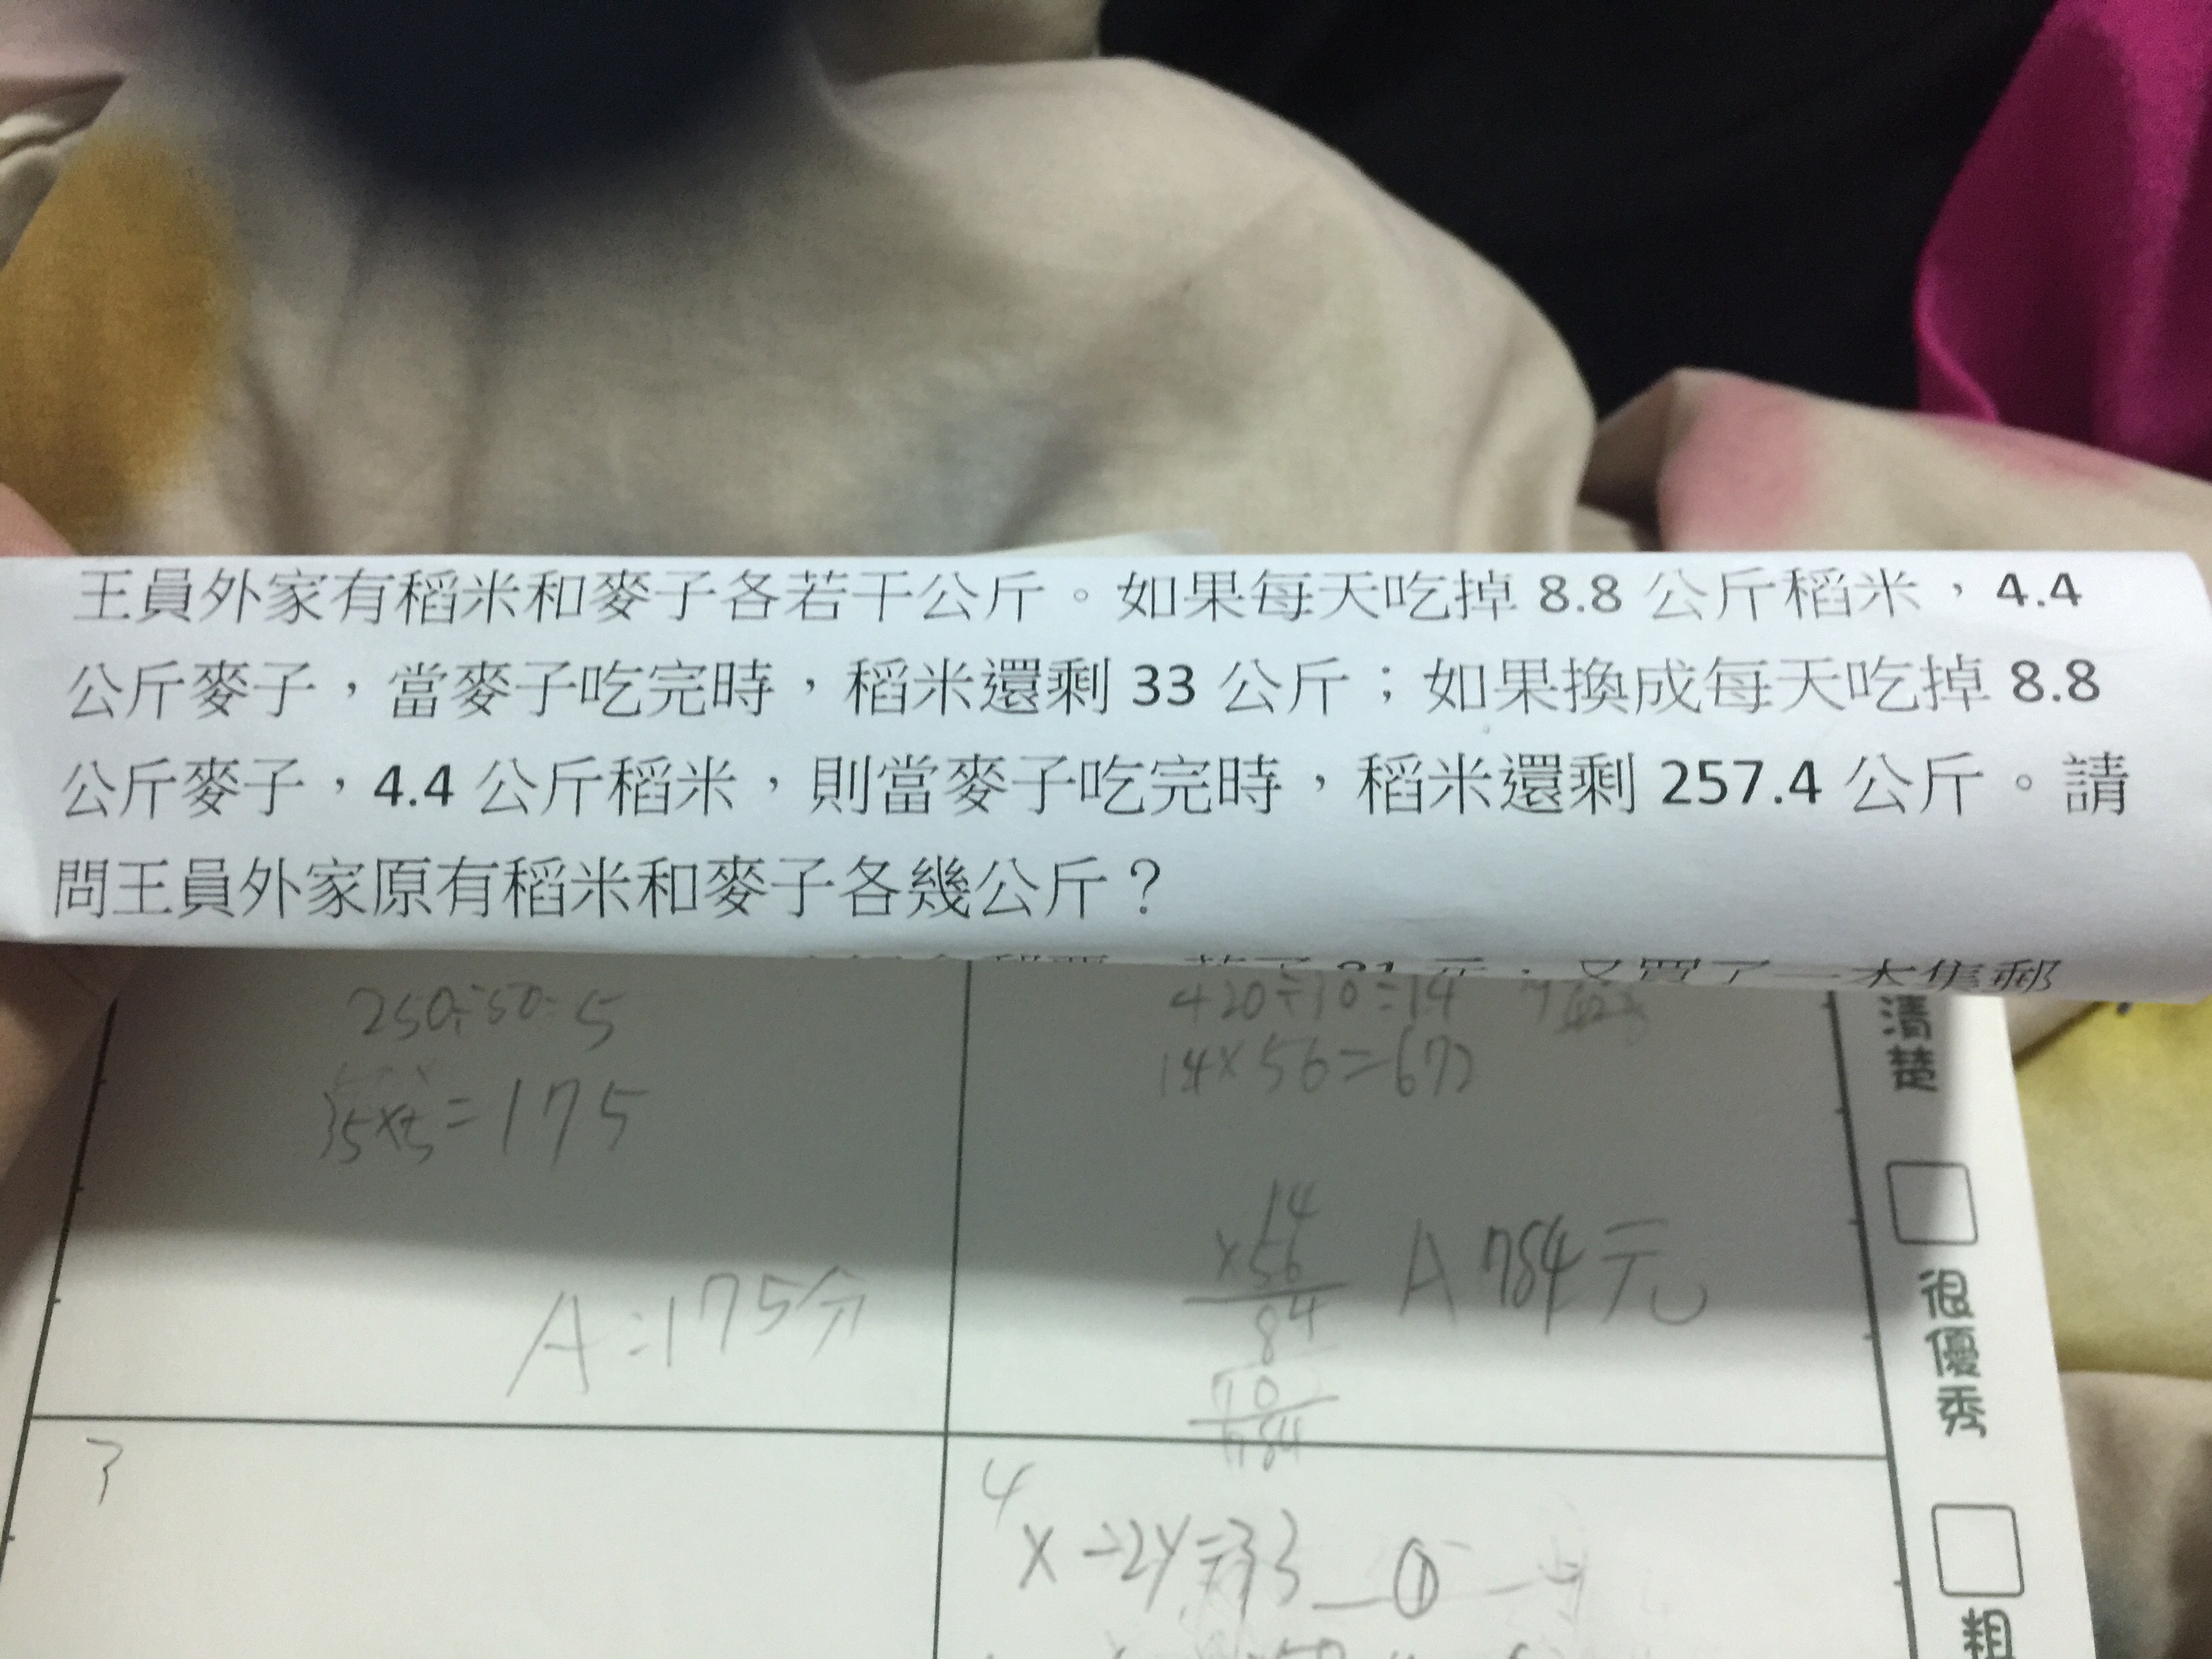 王員外家有稻米和麥子各若干公斤。如果每天吃掉 8.8 公斤稻米，4.4
公斤麥子，當麥子吃完時，稻米還剩 33 公斤；如果換成每天吃掉 8.8
公斤麥子，4.4 公斤稻米，則當麥子吃完時，稻米還剩 257.4 公斤。請
問王員外家原有稻米和麥子各幾公斤？
250÷50=5
35×5=175
A:175分
420÷30=14
14×56=672
14
×56
84
70
784
A 784元
3
4
X-2Y=33 ①
清楚
很優秀
粗